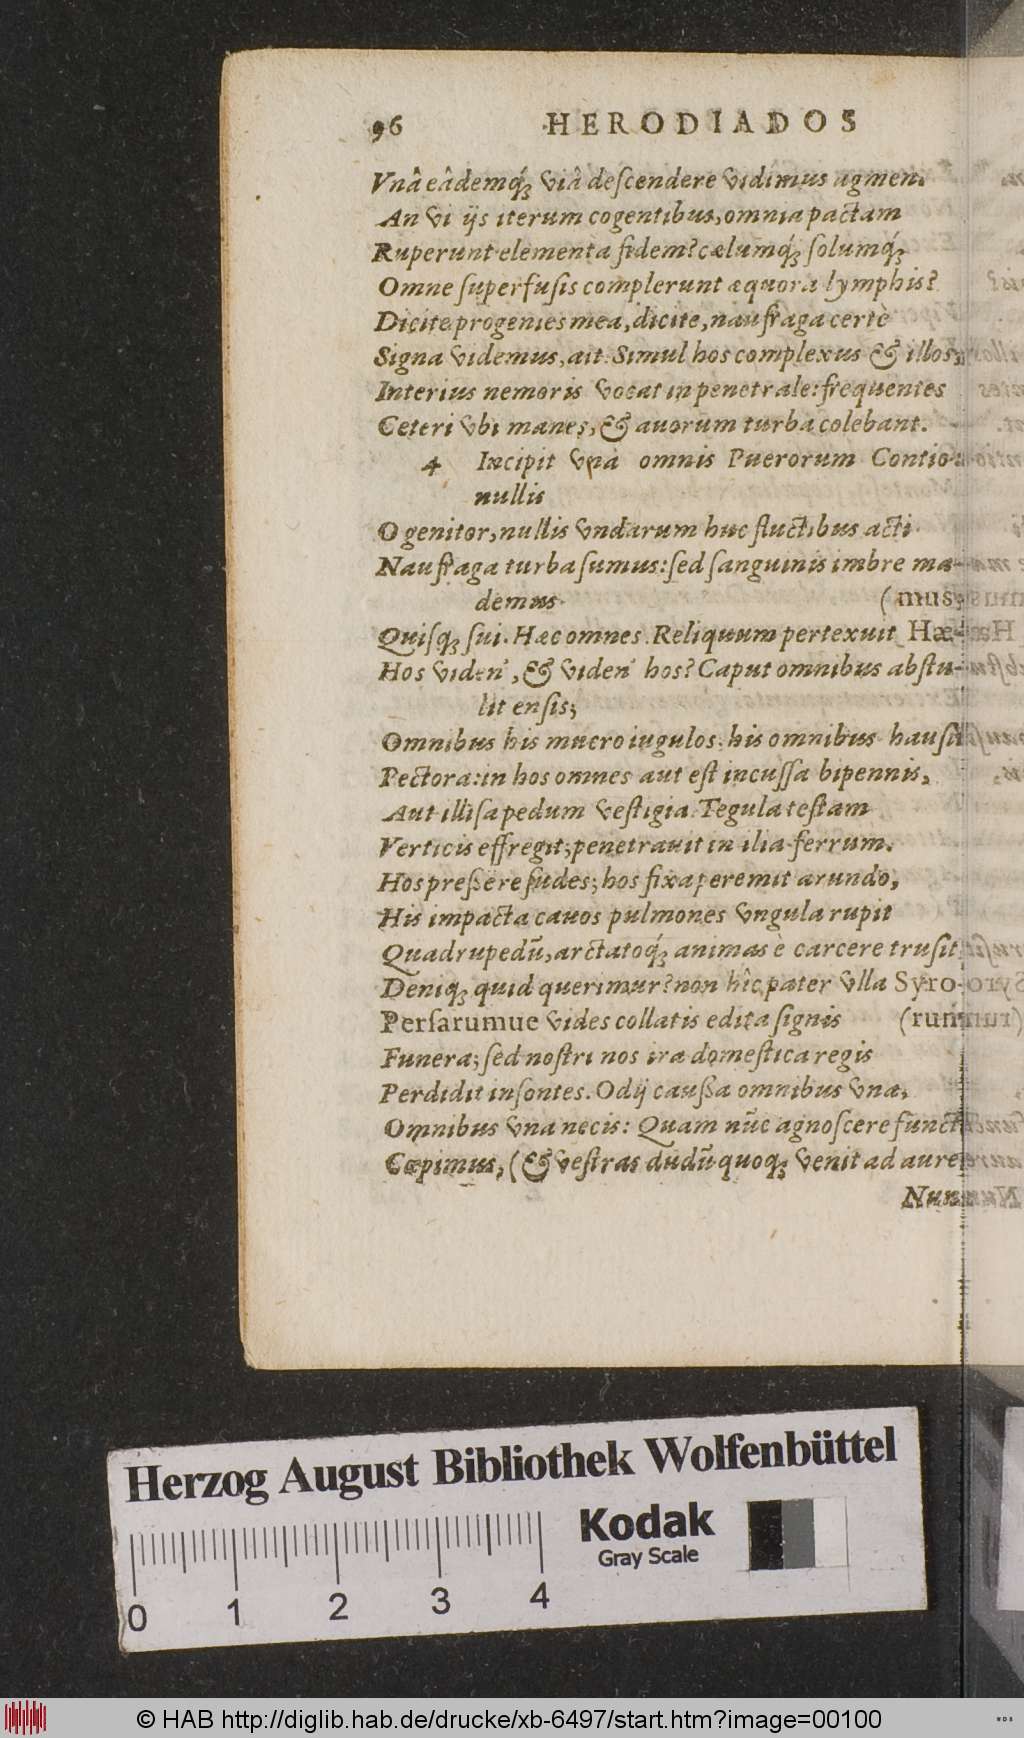 96 HERODIADOS
Vnâ eâdemq́; viâ descendere vidimus agmen.
An vi ijs iterum cogentibus, omnia pactam
Ruperunt elementa fidem? cælumq́; solumq́;
Omne superfusis complerunt æquora lymphis?
Dicite progenies mea, dicite, naufraga certè
Signa videmus, ait. Simul hos complexus & illos,
Interius nemoris vocat in penetrale: frequentes
Ceteri vbi manes, & auorum turba colebant.
4 Incipit vna omnis Puerorum Contio
nullis
O genitor, nullis vndarum huc fluctibus acti
Naufraga turba sumus: sed sanguinis imbre ma-
demus (mus,
Quisq; sui. Hæc omnes. Reliquum pertexuit Hæ-
Hos viden', & viden' hos? Caput omnibus abstu-
lit ensis;
Omnibus his mucro iugulos, his omnibus hausit
Pectora: in hos omnes aut est incussa bipennis,
Aut illisa pedum vestigia. Tegula testam
Verticis effregit; penetrauit in ilia ferrum.
Hos preßere sudes; hos fixa peremit arundo,
His impacta cauos pulmones vngula rupit
Quadrupedũ, arctatoq́; animas è carcere trusit.
Deniq; quid querimur? non hîc pater vlla Syro-
Persarumue vides collatis edita signis (rum
Funera; sed nostri nos ira domestica regis
Perdidit insontes. Odij caußa omnibus vna,
Omnibus vna necis: Quam nũc agnoscere functi
Cœpimus, (& vestras dudũ quoq; venit ad aures
Nun
Herzog August Bibliothek Wolfenbüttel
Kodak
Gray Scale
0 1 2 3 4
© HAB http://diglib.hab.de/drucke/xb-6497/start.htm?image=00100